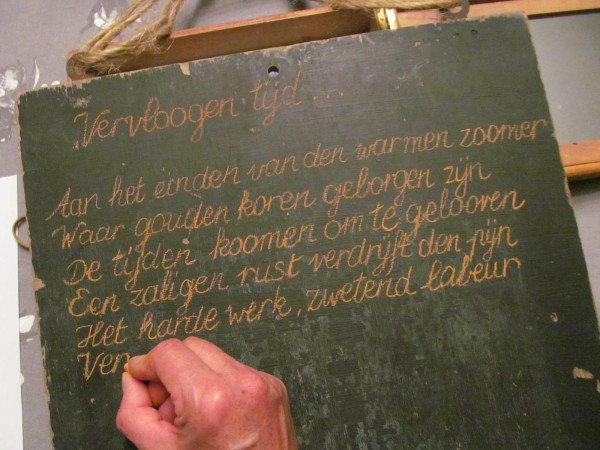 Vervloogen tijd...
Aan het einden van den warmen zoomer
Waar gouden koren geborgen zijn
De tijden koomen om te gelooven
Een zaligen rust verdrijft den pijn
Het harde werk, zwetend labeur
Ver